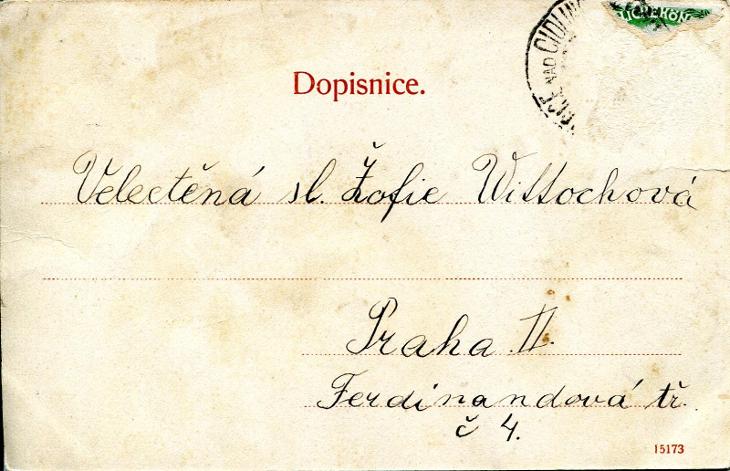 NAD CIDLINOU
Dopisnice.
Velectěná sl. Žofie Wittochová
Praha II.
Ferdinandová tř.
č 4.
15173